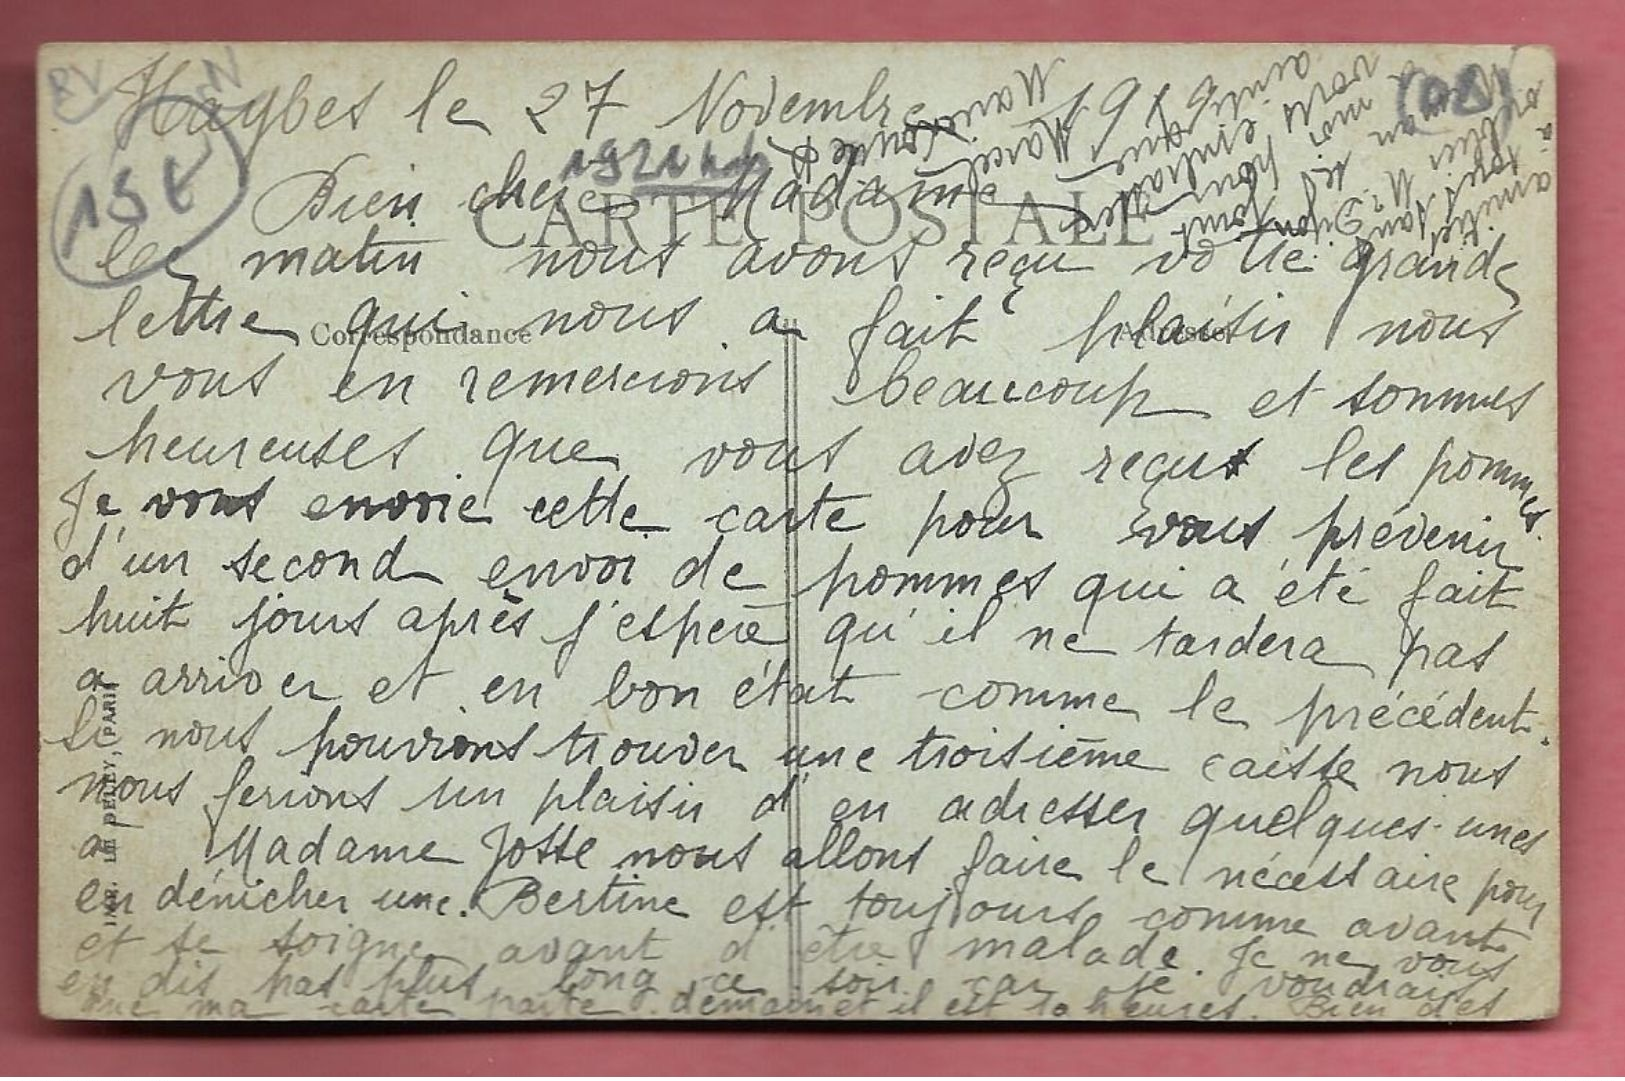 Haybes le 27 Novembre 1919
Bien chère Madame
CARTE POSTALE
Ce matin nous avons reçu votre grande
lettre qui nous a fait plaisir nous
Correspondance
Adresse
vous en remercions beaucoup et sommes
heureuses que vous avez reçus les pommes
Je vous envoie cette carte pour vous prévenir
d'un second envoi de pommes qui a été fait
huit jours après j'espère qu'il ne tardera pas
a arriver et en bon état comme le précédent.
Si nous pouvions trouver une troisième caisse nous
nous ferions un plaisir d'en adresser quelques-unes
a Madame Josse nous allons faire le nécessaire pour
en dénicher une. Bertine est toujours comme avant
et se soigne avant d'être malade. Je ne vous
en dis pas plus long ce soir car je voudrais
que ma carte parte demain et il est 10 heures. Bien des
amitiés
à tous
Maman
moi
vous
amitiés que Marcel
Marie Louise
IMP. LE DELEY, PARIS
15€